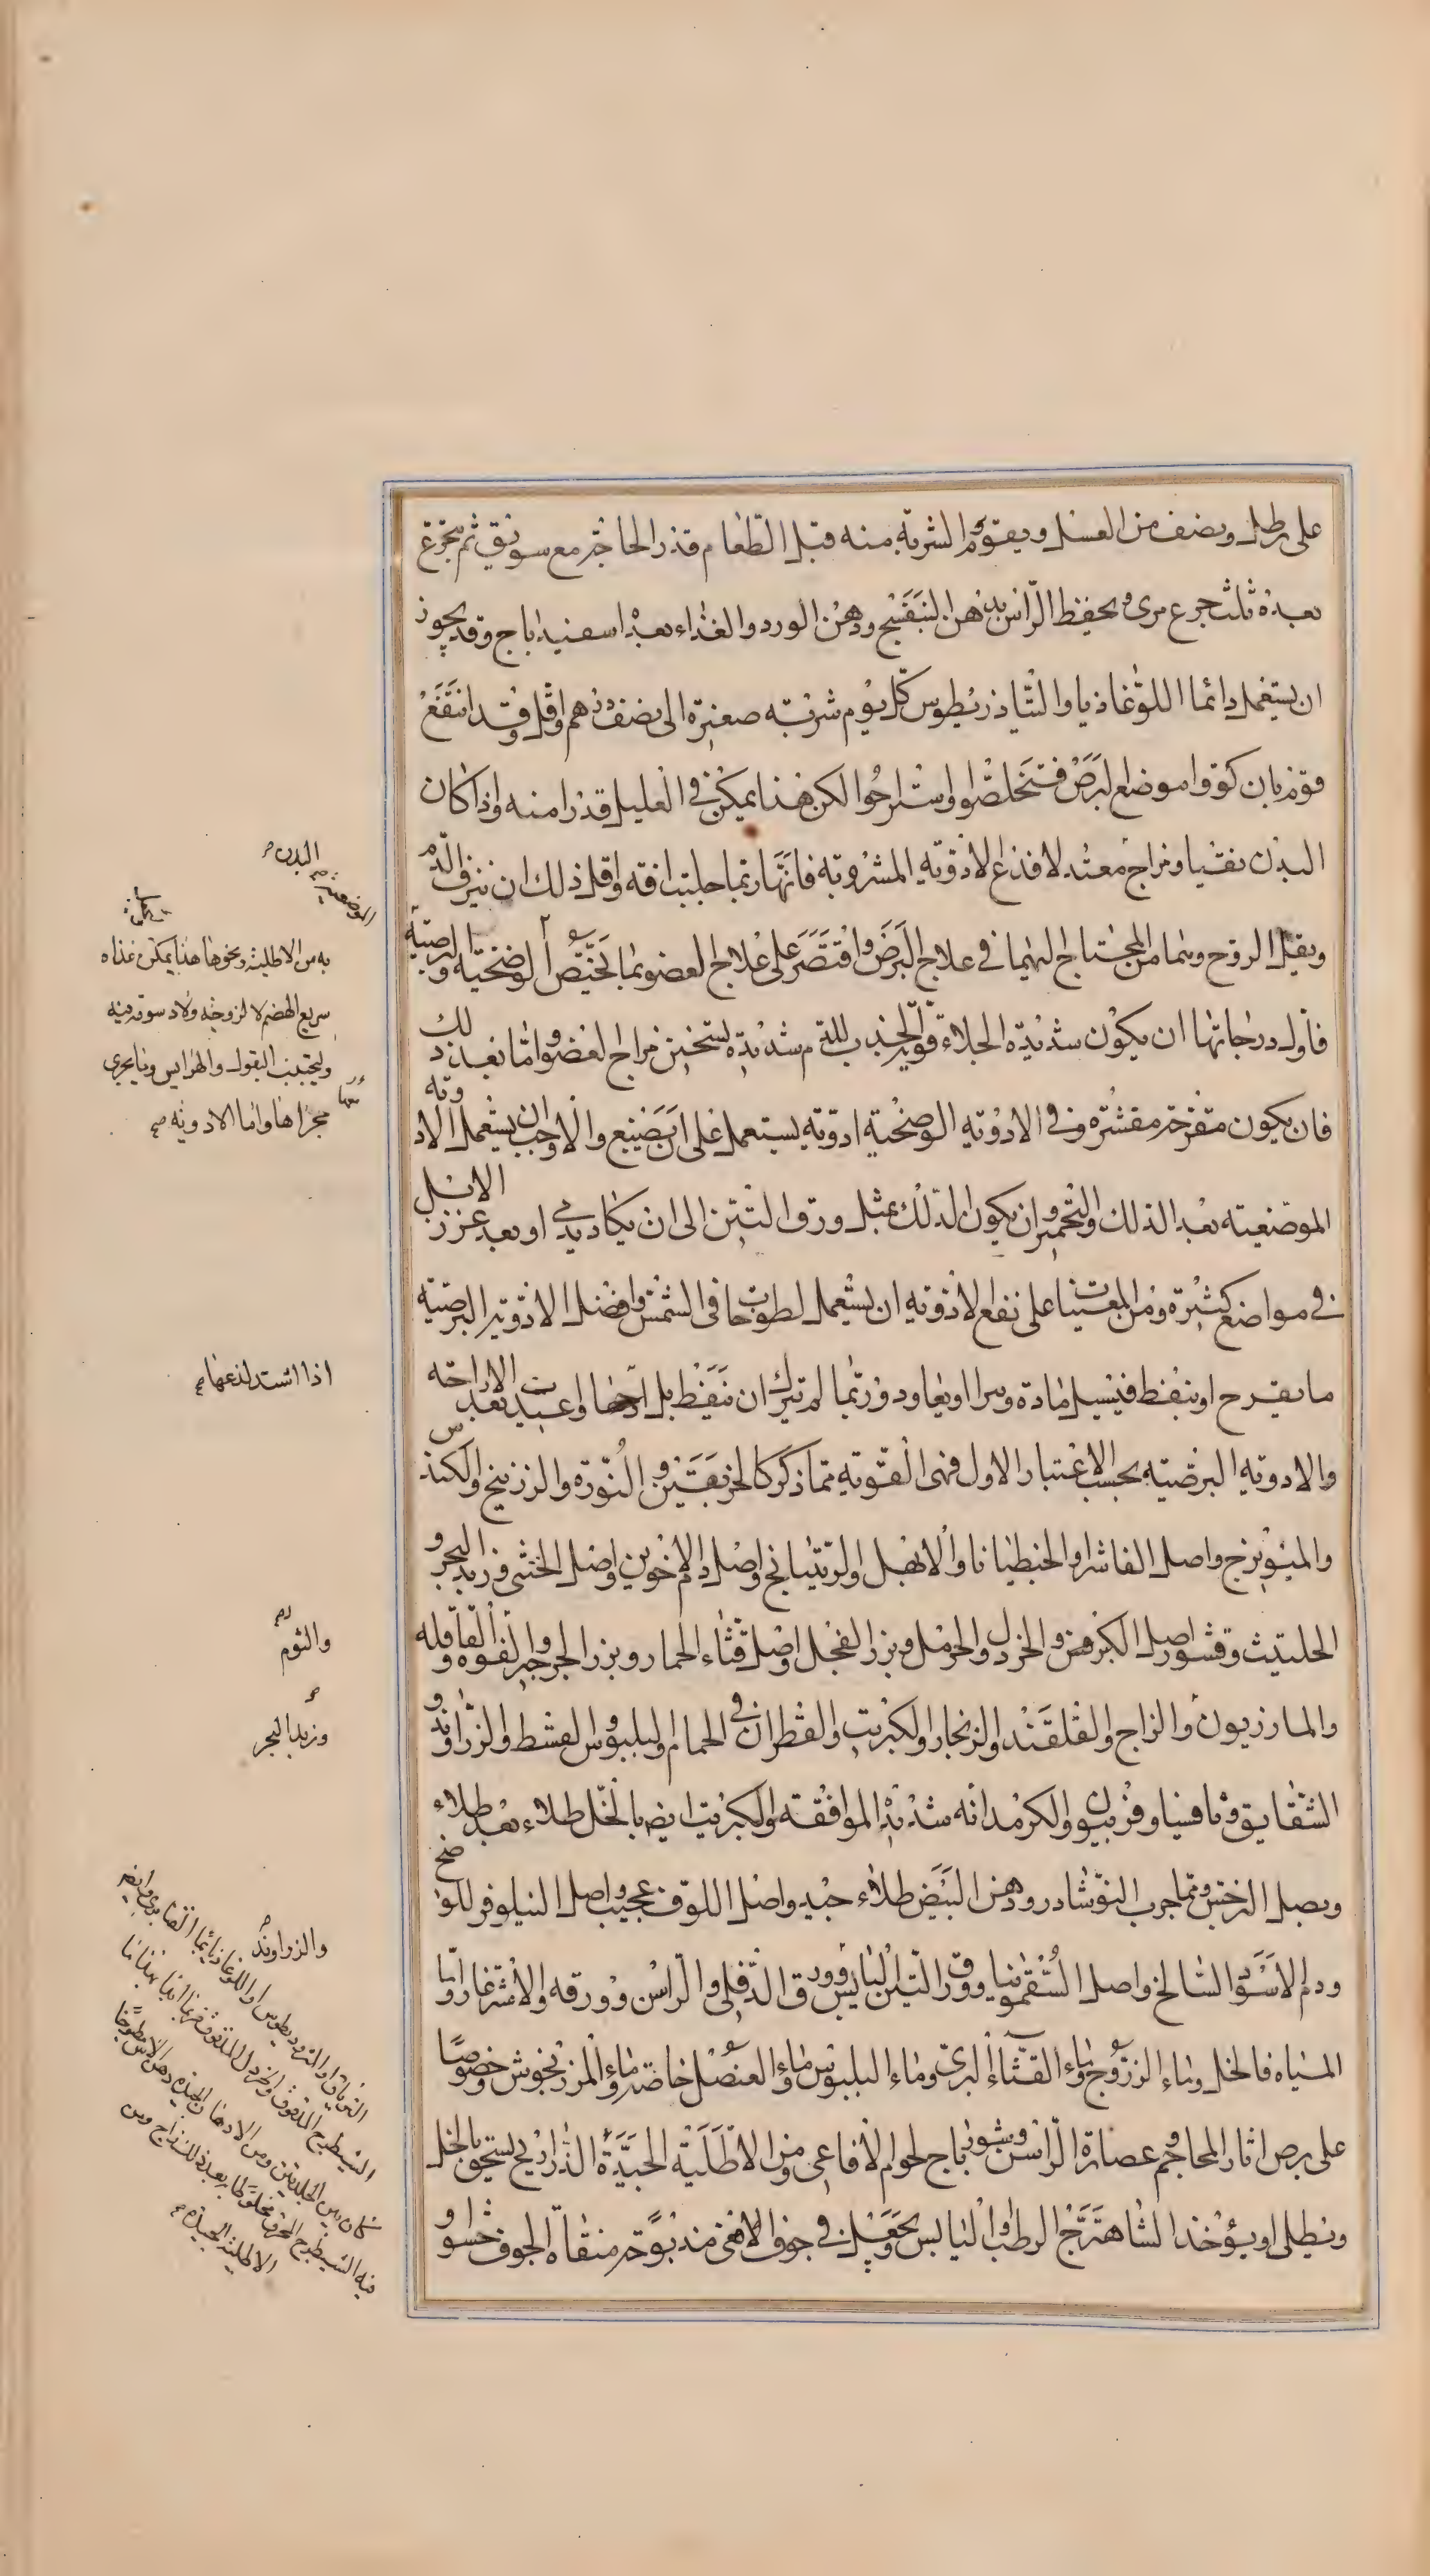 على رطل ونصف من العسل ويقوم الشربة منه قبل الطعام قدر الحاجة مع سويق ثم يتجرع
بعده ثلث جرع مرى ويحفظ الراس بدهن البنفسج ودهن الورد والغذاء بعد اسفيداباج وقد يجوز
ان يستعمل دائما اللوغاذيا والشاذريطوس كل يوم شربته صغيرة الى نصف درهم واقل وقد انتفع
قوم بان كووا موضع البرص فتخلصوا واستراحوا لكن هذا يمكن في القليل قدرا منه واذا كان
البدن نقيا ومزاج معتدلا فدع الادوية المشروبة فانها ربما جلبت افة واقل ذلك ان ينزف الدم
ويقبل الروح وينما من المحتاج اليهما في علاج البرص واقتصر على علاج العضو بما يختص الوضحية والبرصية
فاول درجاتها ان يكون شديدة الجلاء قوية الجذب للدم شديدة تسخين مزاج العضو واما بعد ذلك
فان يكون مقرحة مقشرة وفي الادوية الوضحية ادوية يستعمل على ان يصبغ والاوجب ان يستعمل الادوية
الموضعية بعد الدلك والتحمير وان يكون الدلك بمثل ورق التين الى ان يكاد يدمي او بعد غرز الابر
في مواضع كثيرة ومن المعينات على نفع الادوية ان يستعمل لطوخا في الشمس وافضل الادوية البرصية
ما يقرح او ينفط فيسيل مادة ويبرا او يعاود وربما لم يترك ان ينفط بل ارحها واعيدت بعد الاراحة
والادوية البرصية بحسب الاعتبار الاول فهى القوية مما ذكر كالخربقين والنورة والزرنيخ والكندس
والميويزج واصل الفاشرا والجنطيانا والابهل والريتيانج واصل دم الاخوين واصل الخنثى وزبد البحر و
الحلتيت وقشور اصل الكبر والخردل والحرمل وبزر الفجل واصل قثاء الحمار وبزر الجرجير والفوة والقاقلة
والمازريون والزاج والقلقند والزنجار والكبريت والقطران في الحمام والبلبوس والقسط والزراوند و
الشقايق وثافسيا وفربيون والكرمدانه شديد الموافقة والكبريت ايضا بالخل طلاء بعد طلاء
وبصل النرجس ومما جرب النوشادر ودهن البيض طلاء جيد واصل اللوف عجيب واصل النيلوفر للوضح
ودم الاسود السالخ واصل السقمونيا وورق التين اليابس وورق الدفلى والراسن وورقه والاشترغاز واما
المياه فالخل وماء الزرنوج وماء القثاء البرى وماء البلبوس وماء العنصل خاصة وماء المرزنجوش خصوصا
على برص اثار المحاجم وعصارة الراسن وشورباج لحوم الافاعى ومن الاطلية الجيدة الذراريح يسحق بالخل
ويطلى او يؤخذ الشاهترج الرطب او اليابس ويجعل في جوف الافعى مذبوحة منقاة الجوف حشوا و
البدن
الموضعية
به من الاطلية ونحوها هذا يمكن غذاه
سريع الهضم لا لزوجة ولا دسومة فيه
وليجتنب البقول والهرايس وما يجرى
مجراها واما الادوية
اذا اشتد لذعها
والثوم
وزبد البحر
والزراوند
الاطلية الجيدة